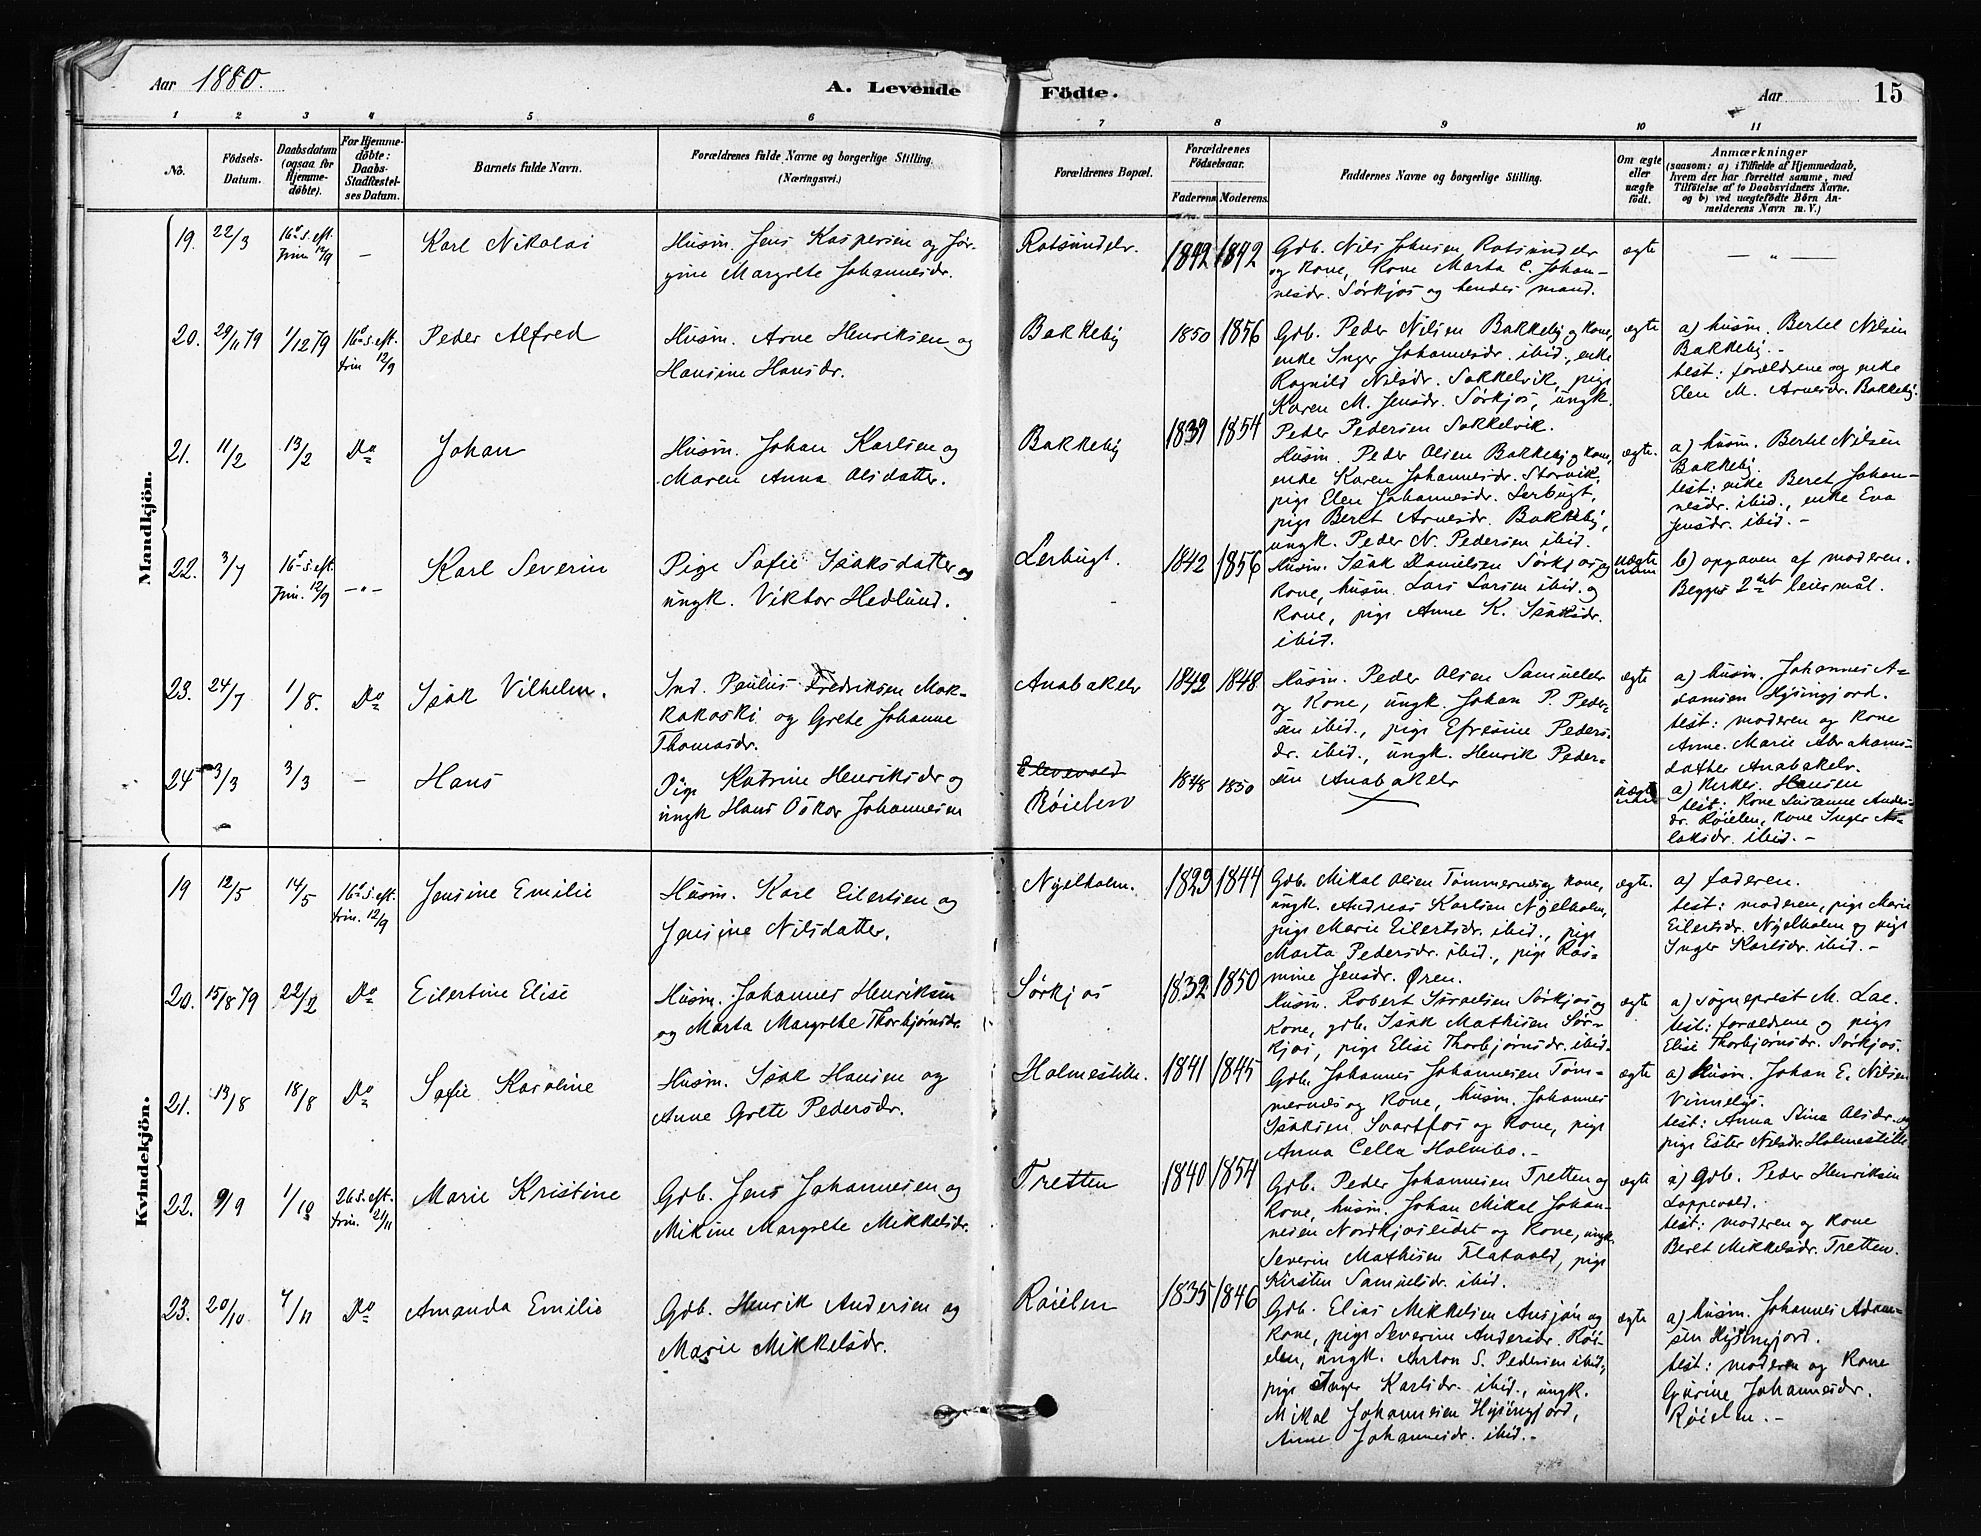 Aar 1880. A. Levende Födte. Aar 15
1 2 3 4 5 6 7 8 9 10 11
No.
Födsels-Datum.
Daabsdatum (ogsaa for Hjemme-döbte).
For Hjemme-döbte: Daabs-Stadfæstel-ses Datum.
Barnets fulde Navn.
Forældrenes fulde Navne og borgerlige Stilling.
(Næringsvei.)
Forældrenes Bopæl.
Forældrenes Födselsaar.
Faderens Moderens.
Faddernes Navne og borgerlige Stilling.
Om ægte eller uægte födt.
Anmærkninger
(saasom: a) i Tilfælde af Hjemmedaab,
hvem der har forrettet samme, med
Tilföielse af to Daabsvidners Navne.
og b) ved uægtefödte Börn An-
melderens Navn m. V.)
Mandkjön.
19. 22/3 16de s. eft. Trin. 12/9 — Karl Nikolai
Husm. Jens Kaspersen og Jør-
gine Margrete Johannesdr.
Rotsundelv. 1842 1842
Gdb. Nils Johnsen Rotsundelv
og kone, kone Marta C. Johan-
nesdr. Sørkjos og hendes mand.
ægte — „ —
20. 29/11 79 1/12 79 16de s. eft. trin 12/9 Peder Alfred
Husm. Arne Henriksen og
Hansine Hansdr.
Bakkeby 1850 1856
Gdb. Peder Nilsen Bakkeby og kone,
enke Inger Johannesdr. ibid., enke
Ragnild Nilsdr. Sokkelvik, pige
Karen M. Jensdr. Sørkjos, ungk.
Peder Pedersen Sokkelvik.
ægte
a) husm. Bertel Nilsen
Bakkeby.-
test: forældrene og enke
Elen M. Arnesdr. Bakkeby.
21. 11/2 13/2 Do Johan
Husm. Johan Karlsen og
Maren Anna Olsdatter.
Bakkeby 1839 1854
Husm. Peder Olsen Bakkeby og kone,
enke Karen Johannesdr. Storvik,
pige Elen Johannesdr. Lerbugt,
pige Beret Arnesdr. Bakkeby,
ungk. Peder N. Pedersen ibid.
ægte.
a) husm. Bertel Nilsen
Bakkeby.
test: enke Beret Johan-
nesdr. ibid., enke Eva
Jensdr. ibid. -
22. 3/7 16de s. eft. Trin. 12/9 —„— Karl Severin
Pige Sofie Isaksdatter og
ungk. Viktor Hedlund.
Lerbugt. 1842 1856
Husm. Isak Danielsen Sørkjos og
kone, husm. Lars Larsen ibid. og
kone, pige Anne K. Isaksdr.
ibid.
uægte
b) opgaven af moderen.
Begges 2det leiermål.
23. 24/7 1/8. Do Isak Vilhelm.
Ind. Paulus Fredriksen Mak-
kakoski og Grete Johanne
Thomasdr.
Anabakelv 1842 1848
Husm. Peder Olsen Samuelelv
og kone, ungk. Johan P. Peder-
sen ibid., pige Efrosine Peders-
dr. ibid., ungk. Henrik Peder-
sen Anabakelv
ægte
a) husm. Johannes A-
damsen Hysingjord.
test: moderen og kone
Anne Marie Abrahams-
datter Anabakelv.
24 3/3 3/3 — Hans
Pige Katrine Henriksdr og
ungk Hans Oskar Johannesen
Elvevold
Røielen 1848 1850
uægte
a) Kirkes. Hansen
test: kone Susanne Anders-
dr. Røielen, kone Inger As-
laksdr. ibid. -
Kvindekjön.
19 12/5 14/5 16de s. eft. trin. 12/9 Jensine Emilie
Husm. Karl Eilertsen og
Jensine Nilsdatter.
Nyelholm. 1829 1844
Gdb. Mikal Olsen Tømmernes og kone,
ungk. Andreas Karlsen Nyelholm,
pige Marie Eilertsdr. ibid., pige
Marta Pedersdr. ibid., pige Ras-
mine Jensdr. Øren.
ægte.
a) faderen.
test: moderen, pige Marie
Eilertsdr. Nyelholm og pige
Inger Karlsdr. ibid. -
20. 15/8 79 22/12 Do Eilertine Elise
Husm. Johannes Henriksen
og Marta Margrete Thorbjørnsdr.
Sørkjos 1832 1850
Husm. Robert Israelsen Sørkjos og
kone, gdb. Isak Mathisen Sør-
kjos, pige Elise Thorbjørnsdr. ibid.
ægte
a) sogneprest M. Lae.
test: forældrene og pige
Elise Thorbjørnsdr. Sørkjos.
21. 13/8 18/8 Do Sofie Karoline
Husm. Isak Hansen og
Anne Grete Pedersdr.
Holmestilte. 1841 1845
Gdb. Johannes Johannesen Tøm-
mernæs og kone, husm. Johannes
Isaksen Svartfos og kone, pige
Anna Cella Holmbo. -
ægte
a) husm. Johan E. Nilsen
Vinnelys.
test: Anna Stina Olsdr. og
pige Ester Nilsdr. Holmestilte
22. 9/9 1/10 26 s. eft. trin. 21/11 Marie Kristine
Gdb. Jens Johannesen og
Mikine Margrete Mikkelsdr.
Tretten 1840 1854
Gdb. Peder Johannesen Tretten og
kone, husm. Johan Mikal Johan-
nesen Nordkjoseidet og kone, ungk.
Severin Mathisen Flatvold, pige
Kirsten Samuelsdr. ibid.
ægte
a) Gdb. Peder Henriksen
Loppevold.
test: moderen og kone
Beret Mikkelsdr. Tretten.
23. 20/10 4/11 Do Amanda Emilie
Gdb. Henrik Andersen og
Marie Mikkelsdr.
Røielen 1835 1846
Gdb. Elias Mikkelsen Ansjøn og
kone, pige Severine Andersdr. Røi-
elen, ungk. Anton S. Pedersen ibid,
pige Inger Karlsdr. ibid., ungk.
Mikal Johannesen Hysingjord,
Anne Johannesdr. ibid.-
ægte
a) husm. Johannes Adam-
sen Hysingjord.
test: moderen og kone
Gurine Johannesdr.
Røielen. -